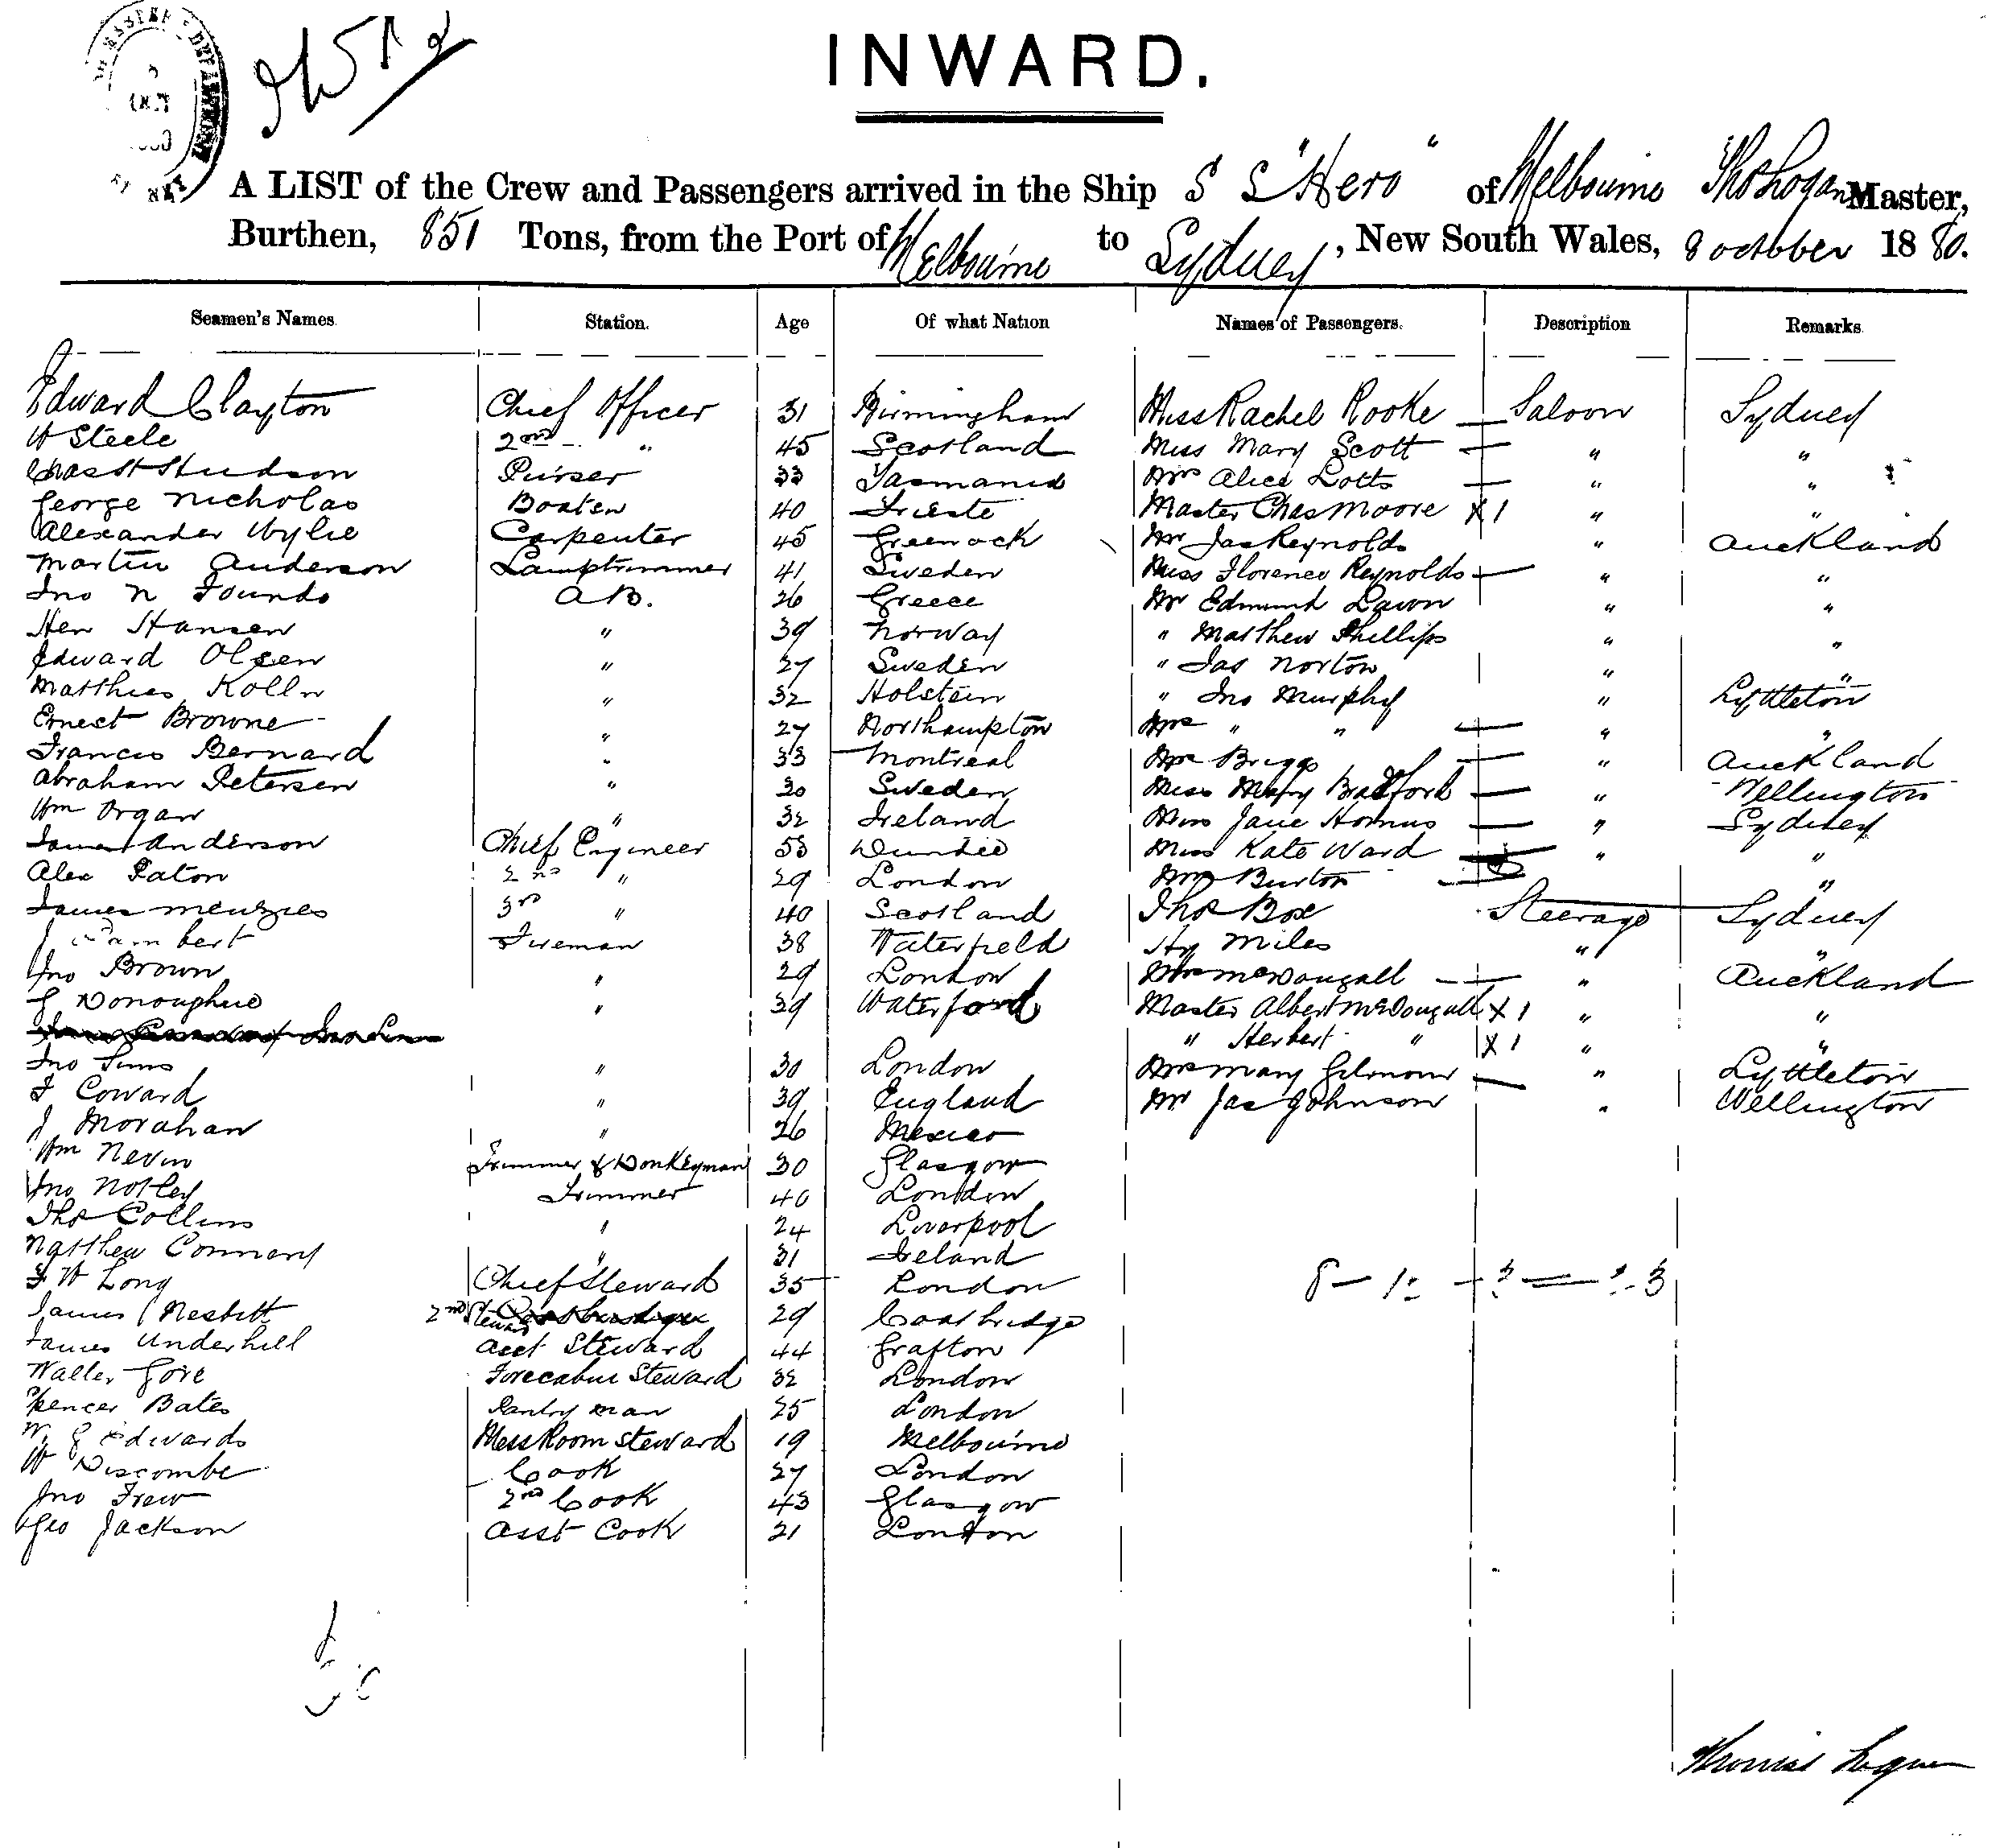 INWARD.
A LIST of the Crew and Passengers arrived in the Ship S S "Hero" of Melbourne Thos Logan Master,
Burthen, 851 Tons, from the Port of Melbourne to Sydney, New South Wales, 8 October 1880.
Seamen's Names. Station. Age Of what Nation Names of Passengers. Description Remarks
Edward Clayton Chief Officer 31 Birmingham Miss Rachel Rooke — Saloon Sydney
W Steele 2nd " 45 Scotland Miss Mary Scott — " "
Chas H Hudson Purser 33 Tasmania Mrs Alice Lotts — " "
George Nicholas Boatsn 40 Trieste Master Chas Moore X 1 " "
Alexander Wylie Carpenter 45 Greenock Mr Jas Reynolds " Auckland
Martin Anderson Lamptrimmer 41 Sweden Miss Florence Reynolds — " "
Jno N Founds A B. 26 Greece Mr Edmund Lawn " "
Hen Hansen " 39 Norway " Matthew Phillips " "
Edward Olsen " 27 Sweden " Jas Norton " "
Matthies Kolln " 32 Holstein " Jno Murphy " Lyttleton
Ernest Browne " 27 Northampton Mrs " " — " "
Francis Bernard " 33 Montreal Mrs Briggs — " Auckland
Abraham Petersen " 30 Sweden Miss Mary Bradford — " Wellington
Wm Organ " 32 Ireland Miss Jane — " Sydney
James Anderson Chief Engineer 53 Dundee Miss Kate Ward — " "
Alex Paton 2nd " 29 London Burton — "
James Menzies 3rd " 40 Scotland Thos Box Steerage Sydney
J Fireman 38 Waterfield Hy Miles " "
Jno Brown " 29 London Mrs McDougall — " Auckland
J Donoughue " 39 Waterford Master Albert McDougall X 1 " "
" Herbert " X 1 " "
Jno Sims " 30 London Mrs Mary Gilmour — " Lyttleton
F Coward " 39 England Mr Jas Johnson " Wellington
J Morahan " 26 Mexico
Wm Nevin Trimmer & Donkeyman 30 Glasgow
Jno Notley Trimmer 40 London
Thos Collins " 24 Liverpool
Matthew Connery " 31 Ireland
F W Long Chief Steward 35 London
James Nesbitt 2nd Steward 29 Coatbridge
James Underhill Asst Steward 44 Grafton
Walter Gore Forecabin Steward 32 London
Spencer Bates Pantry man 25 London
W G Edwards Mess Room Steward 19 Melbourne
W Discombe Cook 27 London
Jno Frew 2nd Cook 43 Glasgow
Geo Jackson Asst Cook 21 London
Thomas Logan